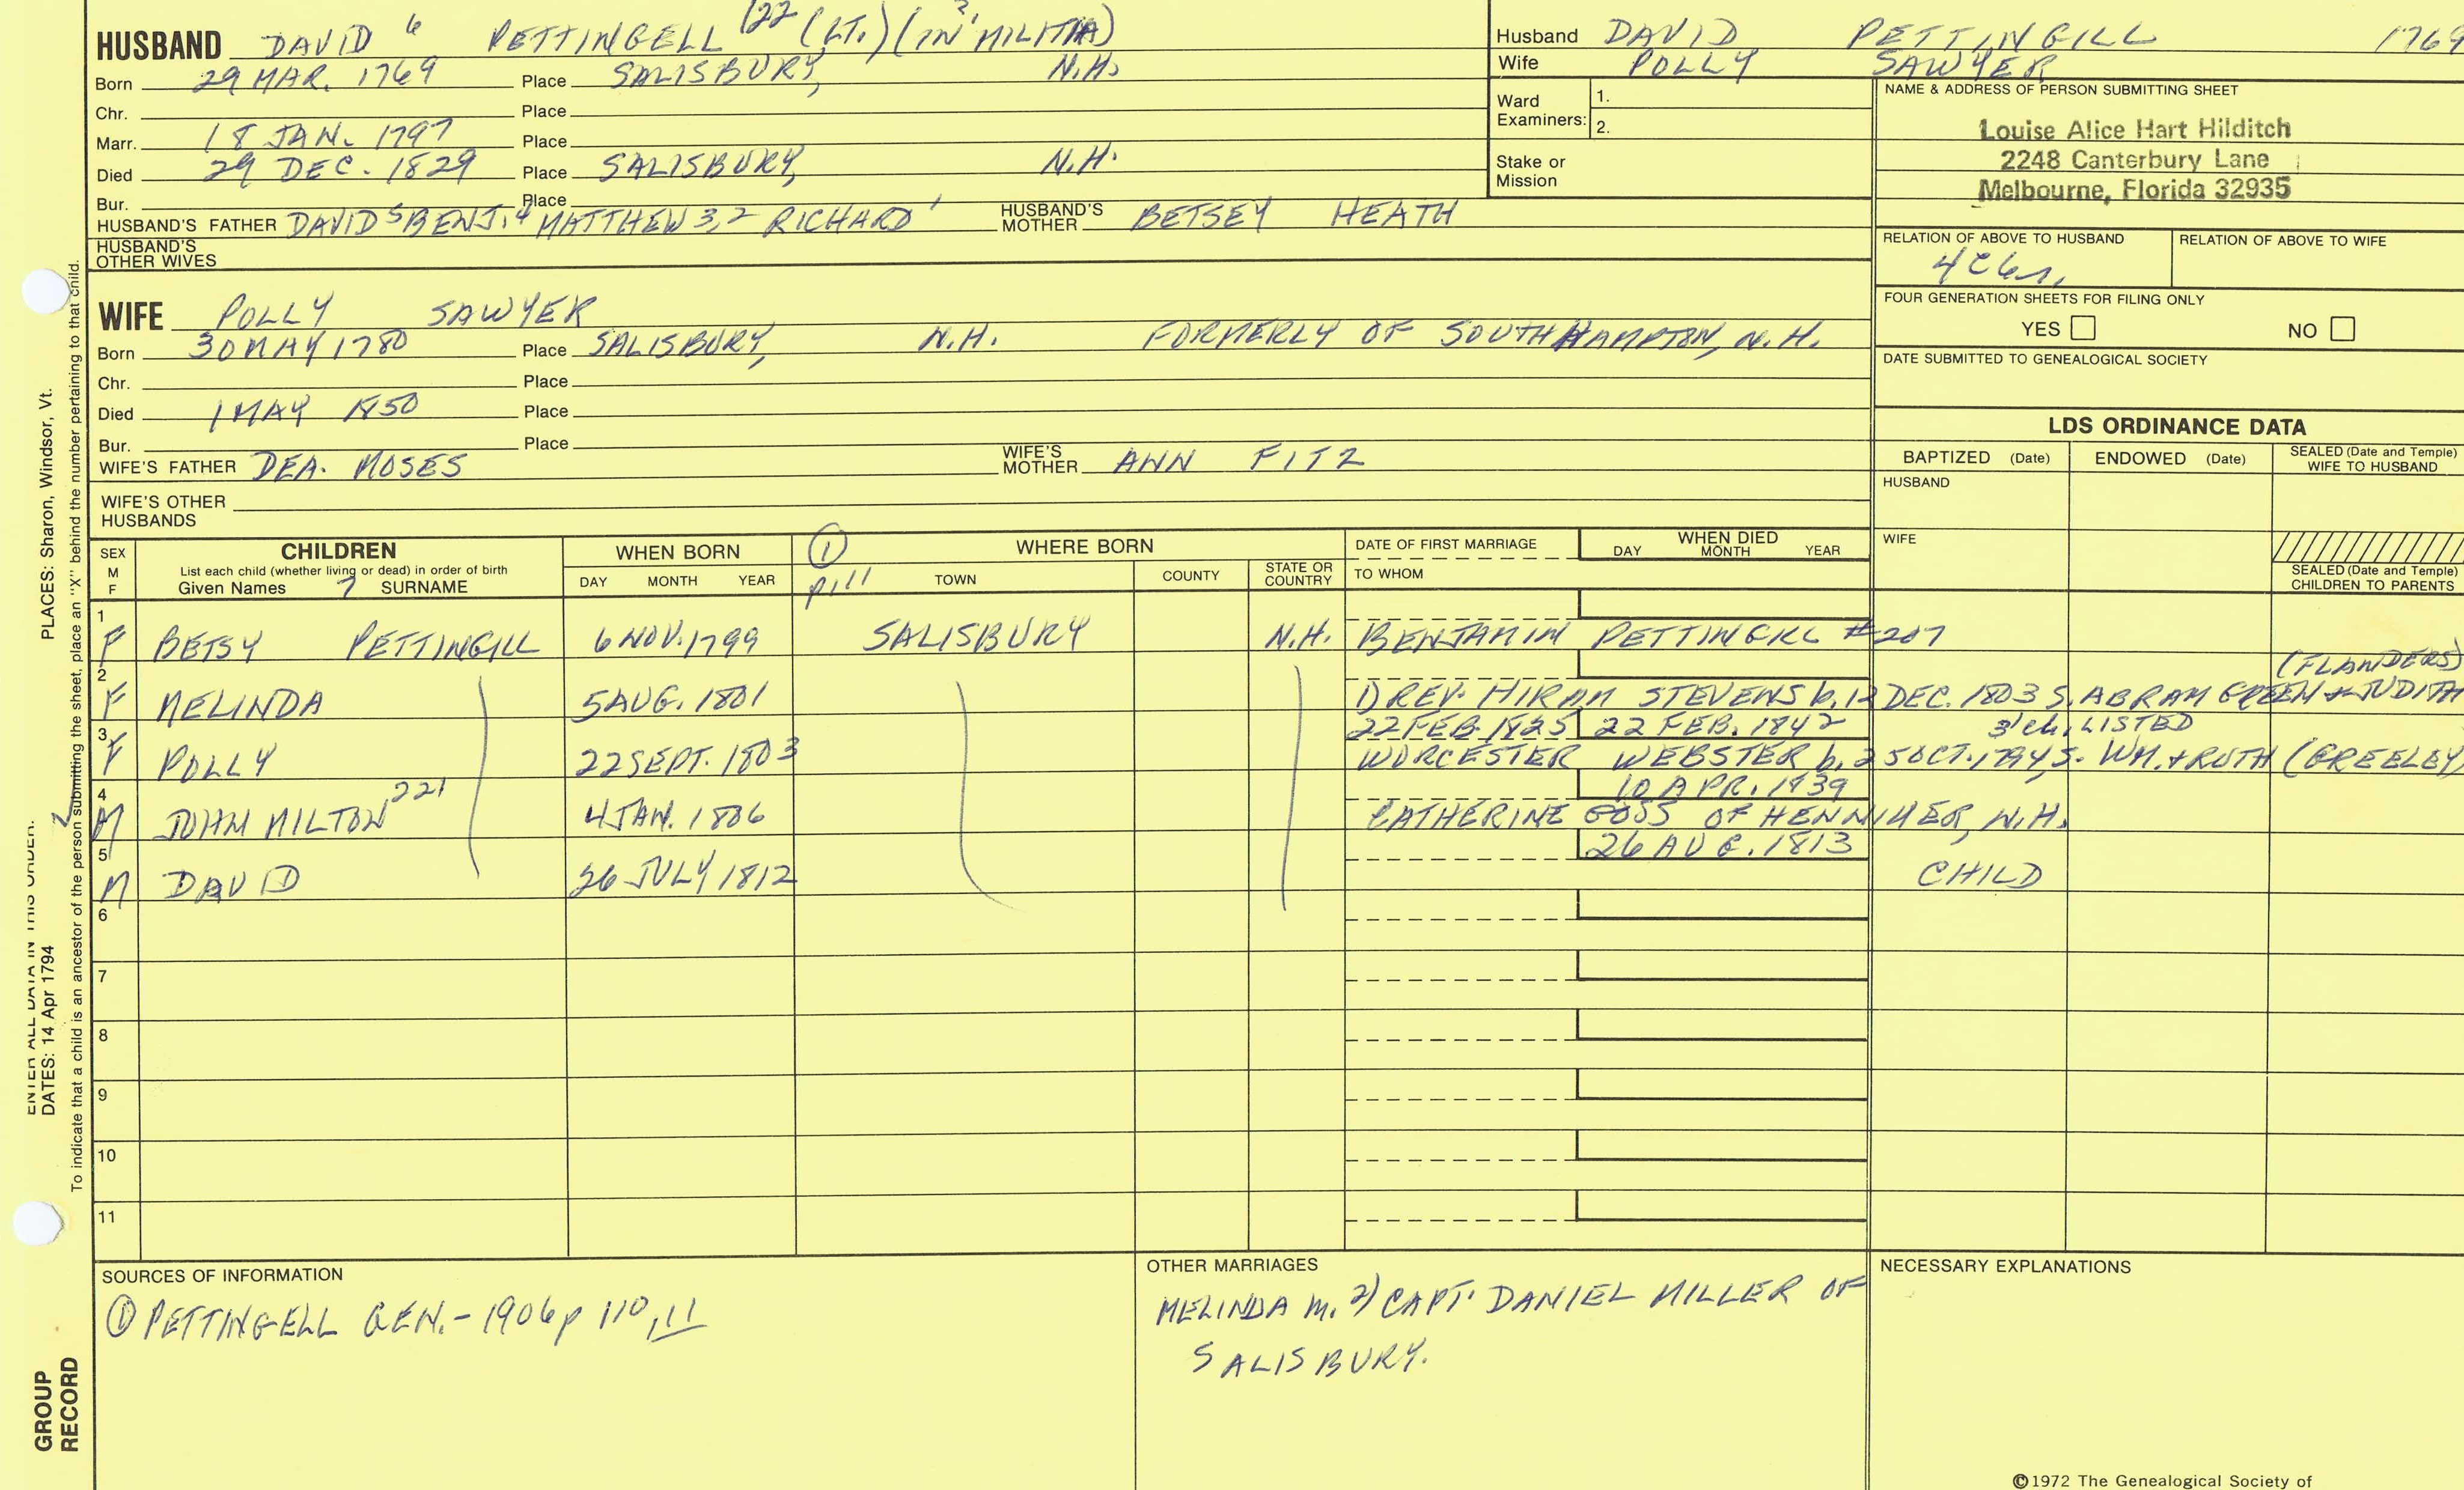 HUSBAND DAVID 6 PETTINGELL 122 (LT.) (IN MILITIA)
Born 29 MAR. 1769 Place SALISBURY, N.H.
Chr. Place
Marr. 18 JAN. 1797 Place
Died 29 DEC. 1829 Place SALISBURY, N.H.
Bur. Place
HUSBAND'S FATHER DAVID 5 BENJ. 4 MATTHEW 3, 2 RICHARD 1 HUSBAND'S MOTHER BETSEY HEATH
HUSBAND'S OTHER WIVES
Husband DAVID PETTINGILL 1769
Wife POLLY SAWYER
Ward Examiners: 1.
2.
Stake or Mission
NAME & ADDRESS OF PERSON SUBMITTING SHEET
Louise Alice Hart Hilditch
2248 Canterbury Lane
Melbourne, Florida 32935
RELATION OF ABOVE TO HUSBAND RELATION OF ABOVE TO WIFE
FOUR GENERATION SHEETS FOR FILING ONLY
YES NO
DATE SUBMITTED TO GENEALOGICAL SOCIETY
WIFE POLLY SAWYER
Born 30 MAY 1780 Place SALISBURY, N.H. FORMERLY OF SOUTH HAMPTON, N.H.
Chr. Place
Died 1 MAY 1850 Place
Bur. Place
WIFE'S FATHER DEA. MOSES WIFE'S MOTHER ANN FITZ
WIFE'S OTHER HUSBANDS
LDS ORDINANCE DATA
BAPTIZED (Date) ENDOWED (Date) SEALED (Date and Temple) WIFE TO HUSBAND
HUSBAND
WIFE
SEALED (Date and Temple) CHILDREN TO PARENTS
SEX M F
CHILDREN
List each child (whether living or dead) in order of birth
Given Names 7 SURNAME
WHEN BORN
DAY MONTH YEAR
① WHERE BORN
pill TOWN COUNTY STATE OR COUNTRY
DATE OF FIRST MARRIAGE
TO WHOM
WHEN DIED
DAY MONTH YEAR
1 F BETSY PETTINGILL 6 NOV. 1799 SALISBURY N.H. BENJAMIN PETTINGELL #207
(FLANDERS)
2 F MELINDA 5 AUG. 1801 1) REV. HIRAM STEVENS b. 12 DEC. 1803 S. ABRAM GREEN & JUDITH
22 FEB. 1825 22 FEB. 1842 3 ch. LISTED
3 F POLLY 22 SEPT. 1803 WORCESTER WEBSTER b. 25 OCT. 1794, S. WM. & RUTH (GREELEY)
10 APR. 1839
4 M JOHN MILTON 221 4 JAN. 1806 CATHERINE GOSS OF HENNIKER, N.H.
26 AUG. 1813
5 M DAVID 26 JULY 1812 CHILD
6
7
8
9
10
11
SOURCES OF INFORMATION
① PETTINGELL GEN. - 1906 p 110, 11
OTHER MARRIAGES
MELINDA m. 2) CAPT. DANIEL MILLER OF
SALISBURY.
NECESSARY EXPLANATIONS
©1972 The Genealogical Society of
PLACES: Sharon, Windsor, Vt.
ENTER ALL DATA IN THIS ORDER:
DATES: 14 Apr 1794
To indicate that a child is an ancestor of the person submitting the sheet, place an "X" behind the number pertaining to that child.
GROUP
RECORD